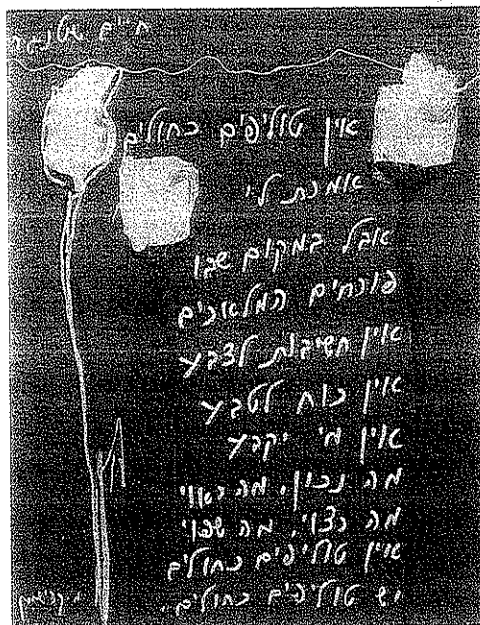 חיים
אין טוליפים כחולים
אמרת לי
אבל במקום שבו
פורחים המלאכים
אין חשיבות לצבע
אין כוח לטבע
אין מי יקבע
מה נכון, מה ראוי
מה רצוי, מה שפוי
אין טוליפים כחולים
יש טוליפים כחולים.